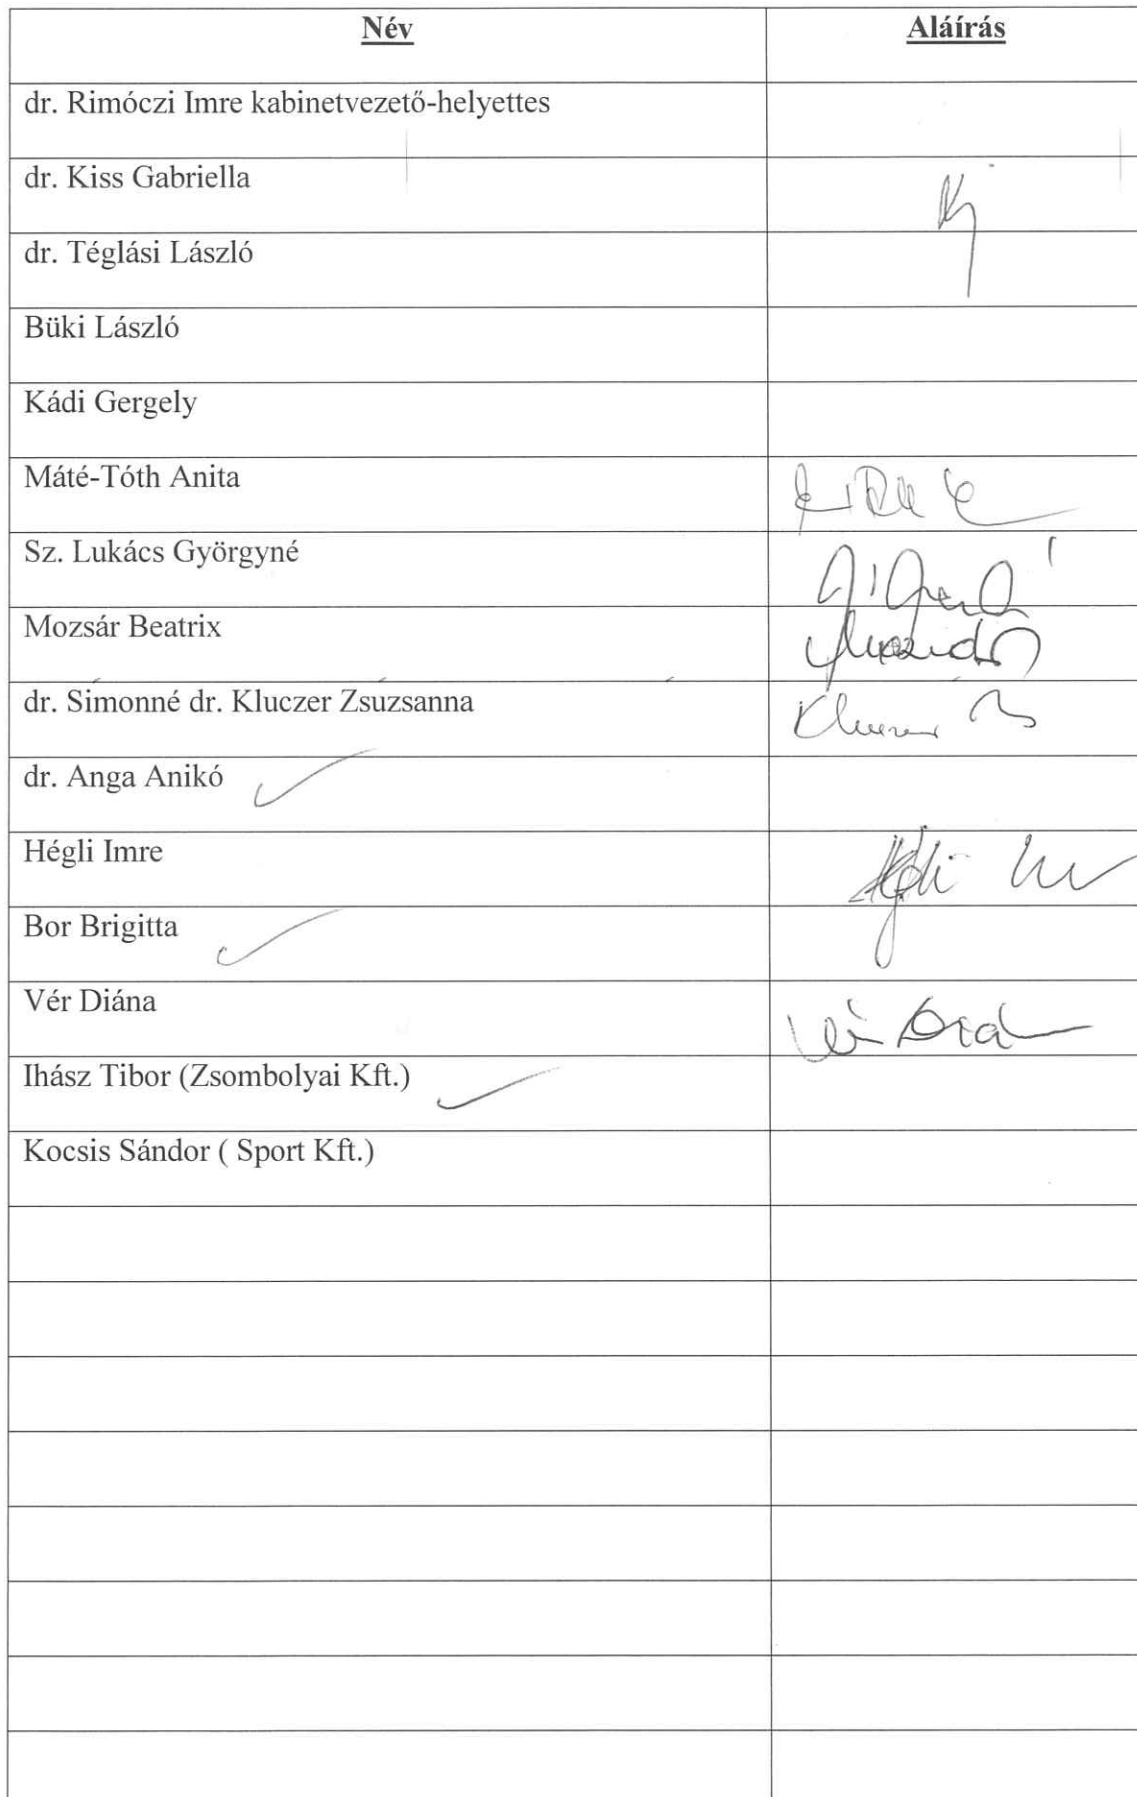 Név Aláírás
dr. Rimóczi Imre kabinetvezető-helyettes
dr. Kiss Gabriella
dr. Téglási László
Büki László
Kádi Gergely
Máté-Tóth Anita
Sz. Lukács Györgyné
Mozsár Beatrix
dr. Simonné dr. Kluczer Zsuzsanna
dr. Anga Anikó
Hégli Imre
Bor Brigitta
Vér Diána
Ihász Tibor (Zsombolyai Kft.)
Kocsis Sándor ( Sport Kft.)